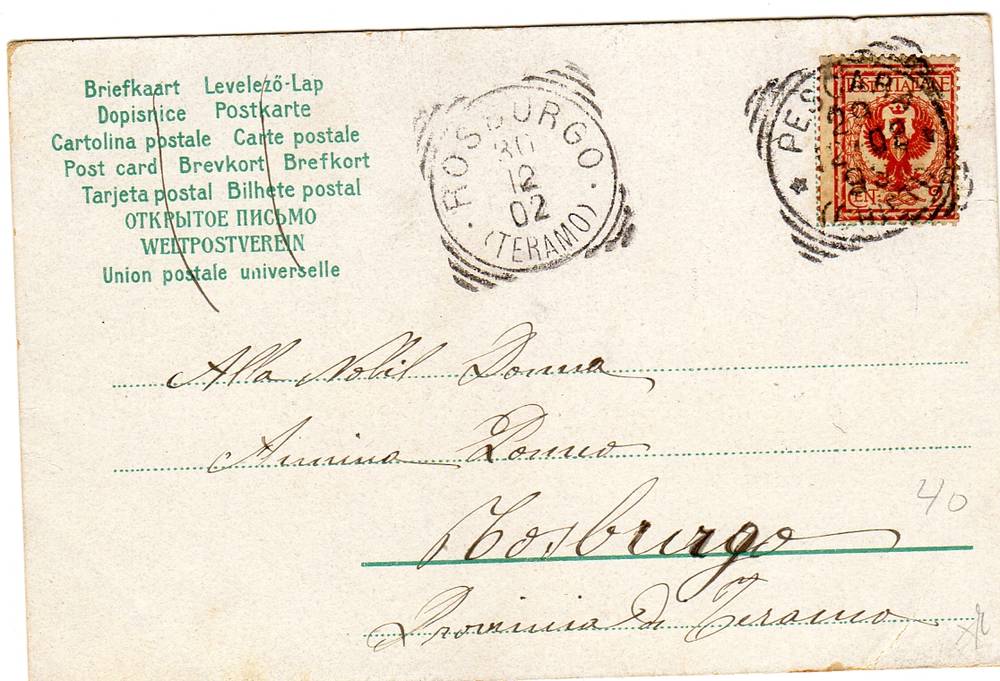 Briefkaart Levelező-Lap
Dopisnice Postkarte
Cartolina postale Carte postale
Post card Brevkort Brefkort
Tarjeta postal Bilhete postal
ОТКРЫТОЕ ПИСЬМО
WELTPOSTVEREIN
Union postale universelle
ROSBURGO
30
12
02
(TERAMO)
PESCARA
29
12
02
POSTE ITALIANE
CEN. 2
Alla Nobil Donna
Annina
Rosburgo
Provincia di Teramo
40